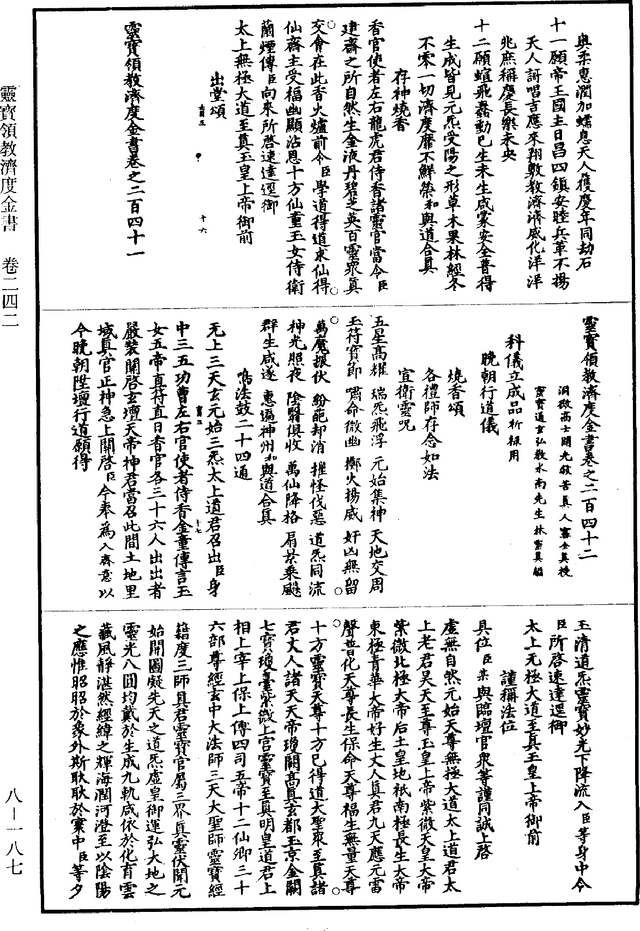 靈寶領教濟度金書 卷二四二
八－一八七
奧柔惠潤加蠕息天人獲慶年同劫石
十一願帝王國主日昌四鎮安睦兵革不揚
天人謌唱吉應來翔敷教濟濟威化洋洋
兆庶稱慶長樂未央
十二願蝖飛蠢動已生未生咸蒙安全普得
生成皆見元炁受陽之形草木果林經冬
不零一切濟度靡不鮮榮和與道合真
存神燒香
香官使者左右龍虎君侍香諸靈官當令臣
建齋之所自然生金液丹碧芝英百靈眾真
交會在此香火爐前令臣學道得道求仙得
仙齋主受福幽顯沾恩十方仙童玉女侍衛
蘭煙傳臣向來所啓速達逕御
太上無極大道至真玉皇上帝御前
出堂頌
十六
靈寶領教濟度金書卷之二百四十一
靈寶領教濟度金書卷之二百四十二
洞微高士開光救苦真人甯全真授
靈寶通玄弘教水南先生林靈真編
科儀立成品祈禳用
晚朝行道儀
燒香頌
各禮師存念如法
宣衛靈呪
五星高耀 瑞炁飛浮 元始集神 天地交周
玉符寶節 嘯命徵幽 擲火揚威 奸凶無留
萬魔振伏 紛葩却消 摧怪伐惡 道炁同流
神光照夜 陰翳俱收 萬仙降格 扃景乘飈
群生咸遂 惠逼神州和與道合真
鳴法鼓二十四通
十七
无上三天玄元始三炁太上道君召出臣身
中三五功曹左右官使者侍香金童傳言玉
女五帝直符直日香官各三十六人出出者
嚴裝關啓玄壇天帝神君當召此間土地里
域真官正神急上關啓臣今奉爲入齋意以
今晚朝陞壇行道願得
玉清道炁靈寶妙光下降流入臣等身中令
臣所啓速達逕御
太上无極大道至真玉皇上帝御前
謹稱法位
具位臣某與臨壇官眾等謹同誠上啓
虛無自然元始天尊無極大道太上道君太
上老君昊天至尊玉皇上帝紫微天皇大帝
紫微北極大帝后土皇地祇南極長生大帝
東極青華大帝好生丈人真君九天應元雷
聲普化天尊長生保命天尊福生無量天尊
十方靈寶天尊十方已得道大聖眾至真諸
君丈人諸天天帝瓊闕高真玄都玉京金闕
七寶瓊臺紫微上宮靈寶至真明皇道君上
相上宰上保上傅四司五帝十二仙卿三十
六部尊經玄中大法師三天大聖師靈寶經
籍度三師真君靈寶官屬三界真靈伏聞元
始開圖凝先天之道炁虛皇御運弘大地之
靈光八圓均戴於生成九軌咸依於化育雲
藏風靜湛然經緯之輝海潤河澄至以陰陽
之應惟昭昭於象外斯耿耿於寰中臣等夕